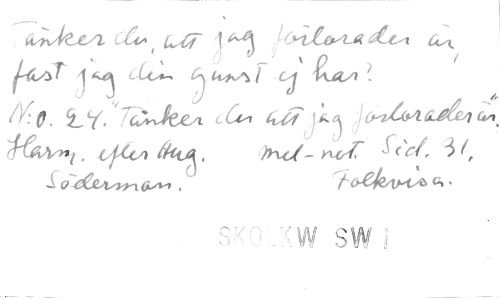 Tänker du, att jag förlorader är,
fast jag din gunst ej har?
N:o. 24. "Tänker du att jag förlorader är".
Harm. efter Aug. mel-not. Sid. 31,
Söderman. Folkvisa.
SKOLKW SW 1